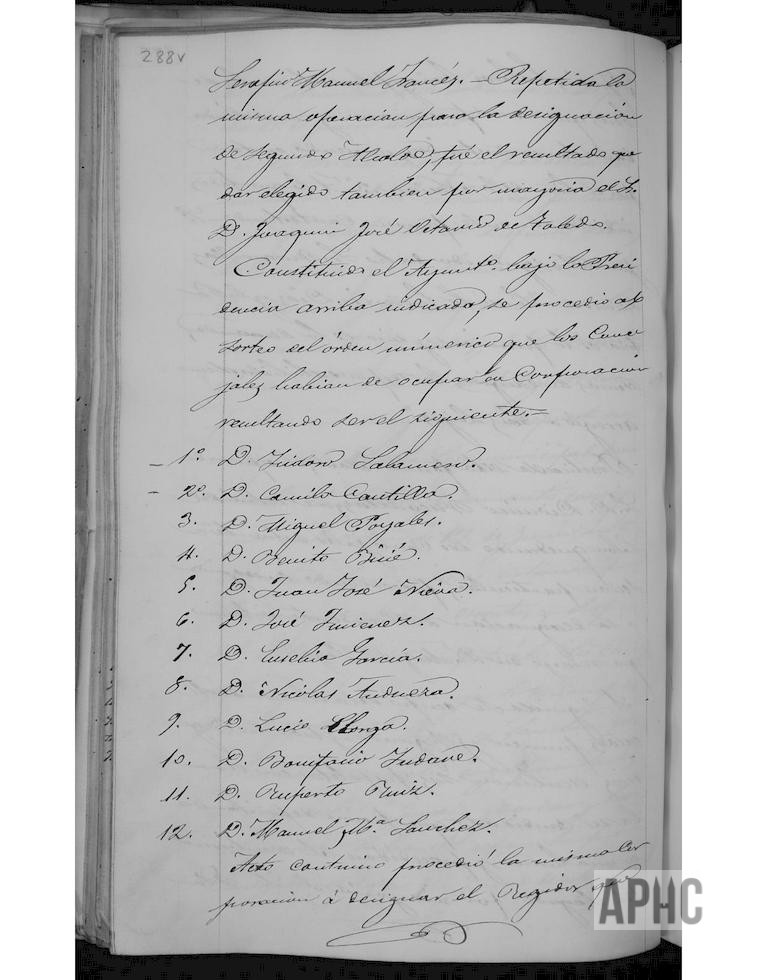 288v
Serafin Manuel Francés. — Repetida la
misma operacion para la designación
de Segundo Alcalde, fué el resultado que
dar elegido tambien por mayoria el S.
D. Joaquin José Octavio de Toledo.
Constituido el Ayunt.º bajo la Presi
dencia arriba indicada, se procedio al
sorteo del órden númerico que los Conce
jales habian de ocupar en Corporacion
resultando ser el siguiente. =
— 1º D. Isidoro Salamero.
— 2º. D. Camilo Cantilla.
3. D. Miguel Poyales.
4. D. Benito
5. D. Juan José Nieva.
6. D. José Jimenez.
7. D. Eusebio García.
8. D. Nicolas Andueza.
9. D. Lucio
10. D. Bonifacio
11. D. Ruperto Ruiz.
12. D. Manuel Mª Sanchez.
Acto continuo procedió la misma Cor
poracion á designar el Regidor que
APHC